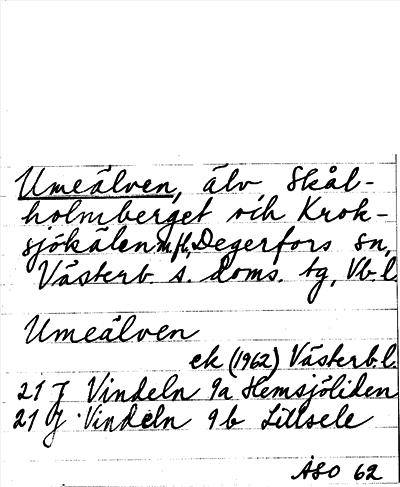 Umeälven, älv, Skål-
holmberget och Krok-
sjökälen m.fl., Degerfors sn,
Västerb. s. doms. tg, Vb. l.
Umeälven
ek (1962) Västerb. l.
21 J Vindeln 9a Hemsjöliden
21 J Vindeln 9b Lillsele
ÅSO 62